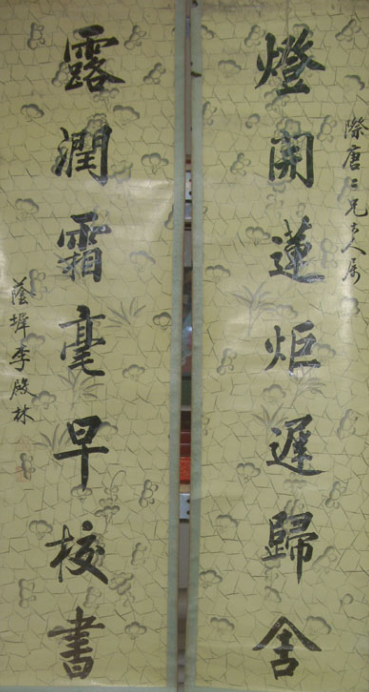 際唐二兄大人属
燈開蓮炬遲歸舍
露潤霜毫早校書
蔭墀李殿林